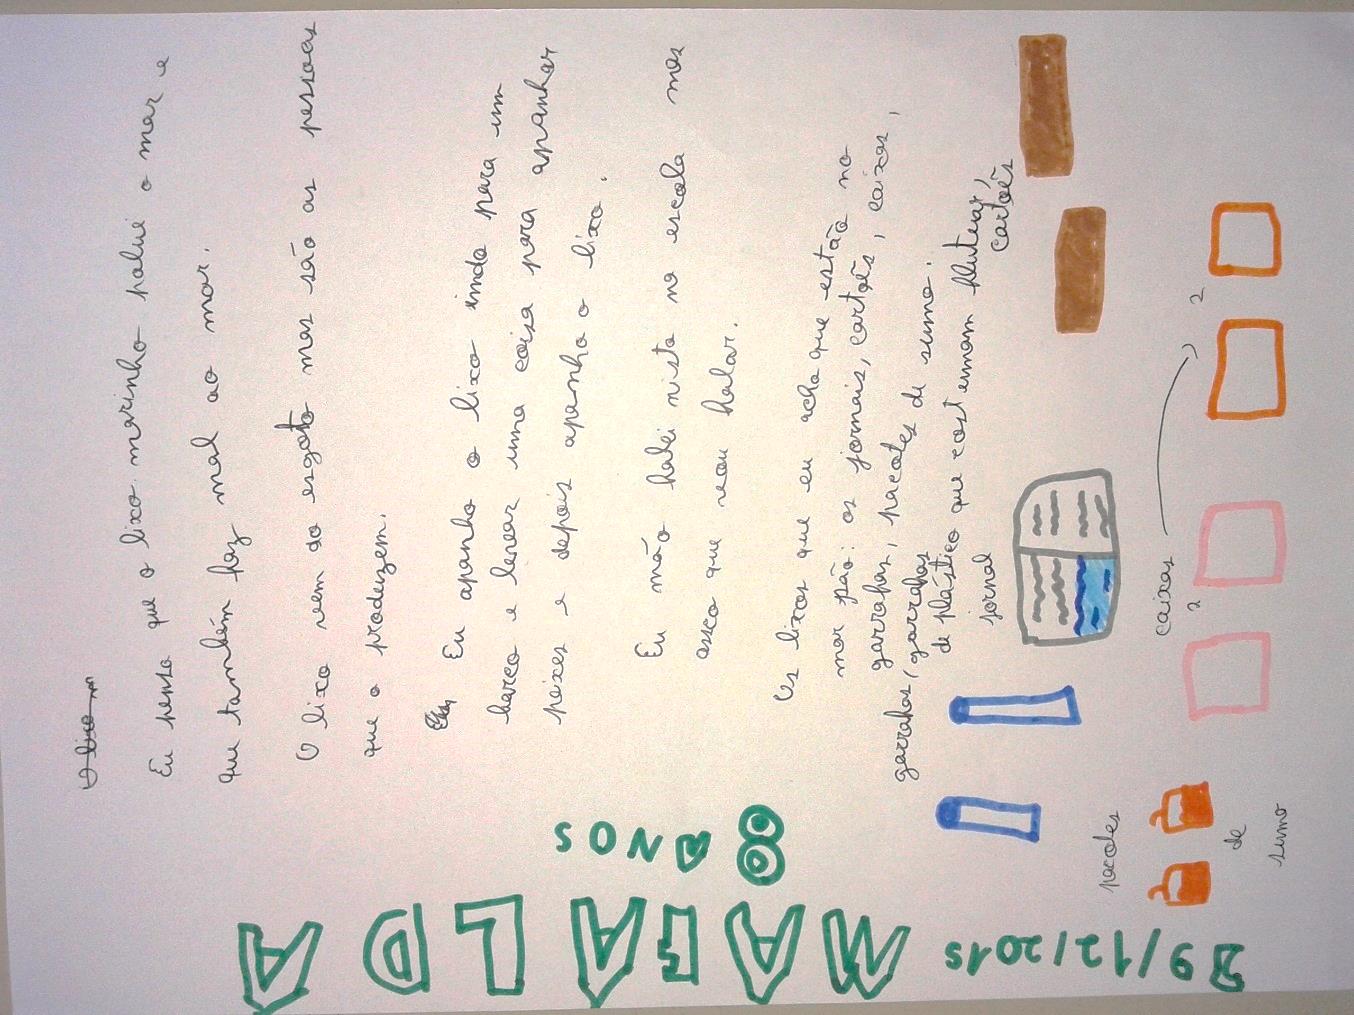 O lixo
Eu penso que o lixo marinho polui o mar e
que também faz mal ao mar.
O lixo vem do esgoto mas são as pessoas
que o produzem.
Eu apanho o lixo indo para um
barco e levar uma coisa para apanhar
peixes e depois apanho o lixo.
Eu não falei nisto na escola mas
acho que vou falar.
Os lixos que eu acho que estão no
mar são: os jornais, cartões, caixas,
garrafas, pacotes de sumo.
garrafas, garrafas
de plástico que costumam flutuar,
jornal
cartões
caixas
2
2
pacotes
de
sumo
MAFALDA
8 ANOS
29/12/2015